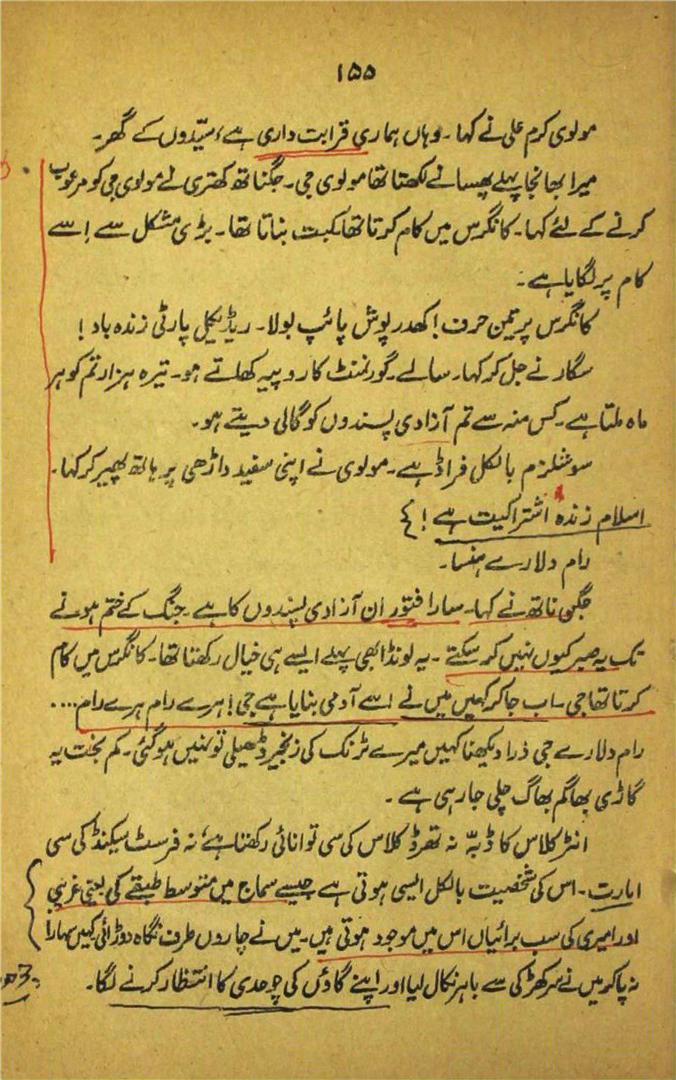 ۱۵۵
مولوی کرم علی نے کہا۔ وہاں ہماری قرابت داری ہے، سیّدوں کے گھر۔
میرا بھانجا پہلے پھسانے لکھتا تھا مولوی جی۔ جگناتھ کھتری نے مولوی جی کو مرعوب
کرنے کے لئے کہا۔ کانگرس میں کام کرتا تھا، کبت بناتا تھا۔ بڑی مشکل سے اِسے
کام پر لگایا ہے۔
کانگرس پر تین حرف! کھدر پوش پائپ بولا۔ ریڈیکل پارٹی زندہ باد!
سگار نے جل کر کہا۔ سالے۔ گورنمنٹ کا روپیہ کھاتے ہو۔ تیرہ ہزار تم کو ہر
ماہ ملتا ہے۔ کس منہ سے تم آزادی پسندوں کو گالی دیتے ہو۔
سوشلزم بالکل فراڈ ہے۔ مولوی نے اپنی سفید داڑھی پر ہاتھ پھیر کر کہا۔
اسلام زندہ اشتراکیت ہے!
رام دلارے ہنسا۔
جگن ناتھ نے کہا۔ سارا فتور ان آزادی پسندوں کا ہے۔ جنگ کے ختم ہونے
تک یہ صبر کیوں نہیں کر سکتے۔ یہ لونڈا بھی پہلے ایسے ہی خیال رکھتا تھا۔ کانگرس میں کام
کرتا تھا جی۔ اب جا کر کہیں میں نے اسے آدمی بنایا ہے جی! ہرے رام ہرے رام....
رام دلارے جی ذرا دیکھنا کہیں میرے ٹرنک کی زنجیر ڈھیلی تو نہیں ہو گئی۔ کم بخت یہ
گاڑی بھاگم بھاگ چلی جا رہی ہے۔
انٹر کلاس کا ڈبہّ نہ تھرڈ کلاس کی سی توانائی رکھتا ہے، نہ فرسٹ سیکنڈ کی سی
امارت۔ اس کی شخصیت بالکل ایسی ہوتی ہے جیسے سماج میں متوسط طبقے کی یعنی غریبی
اور امیری کی سب برائیاں اس میں موجود ہوتی ہیں۔ میں نے چاروں طرف نگاہ دوڑائی کہیں سہارا
نہ پا کر میں نے سر کھڑکی سے باہر نکال لیا اور اپنے گاؤں کی چوحدی کا انتظار کرنے لگا۔